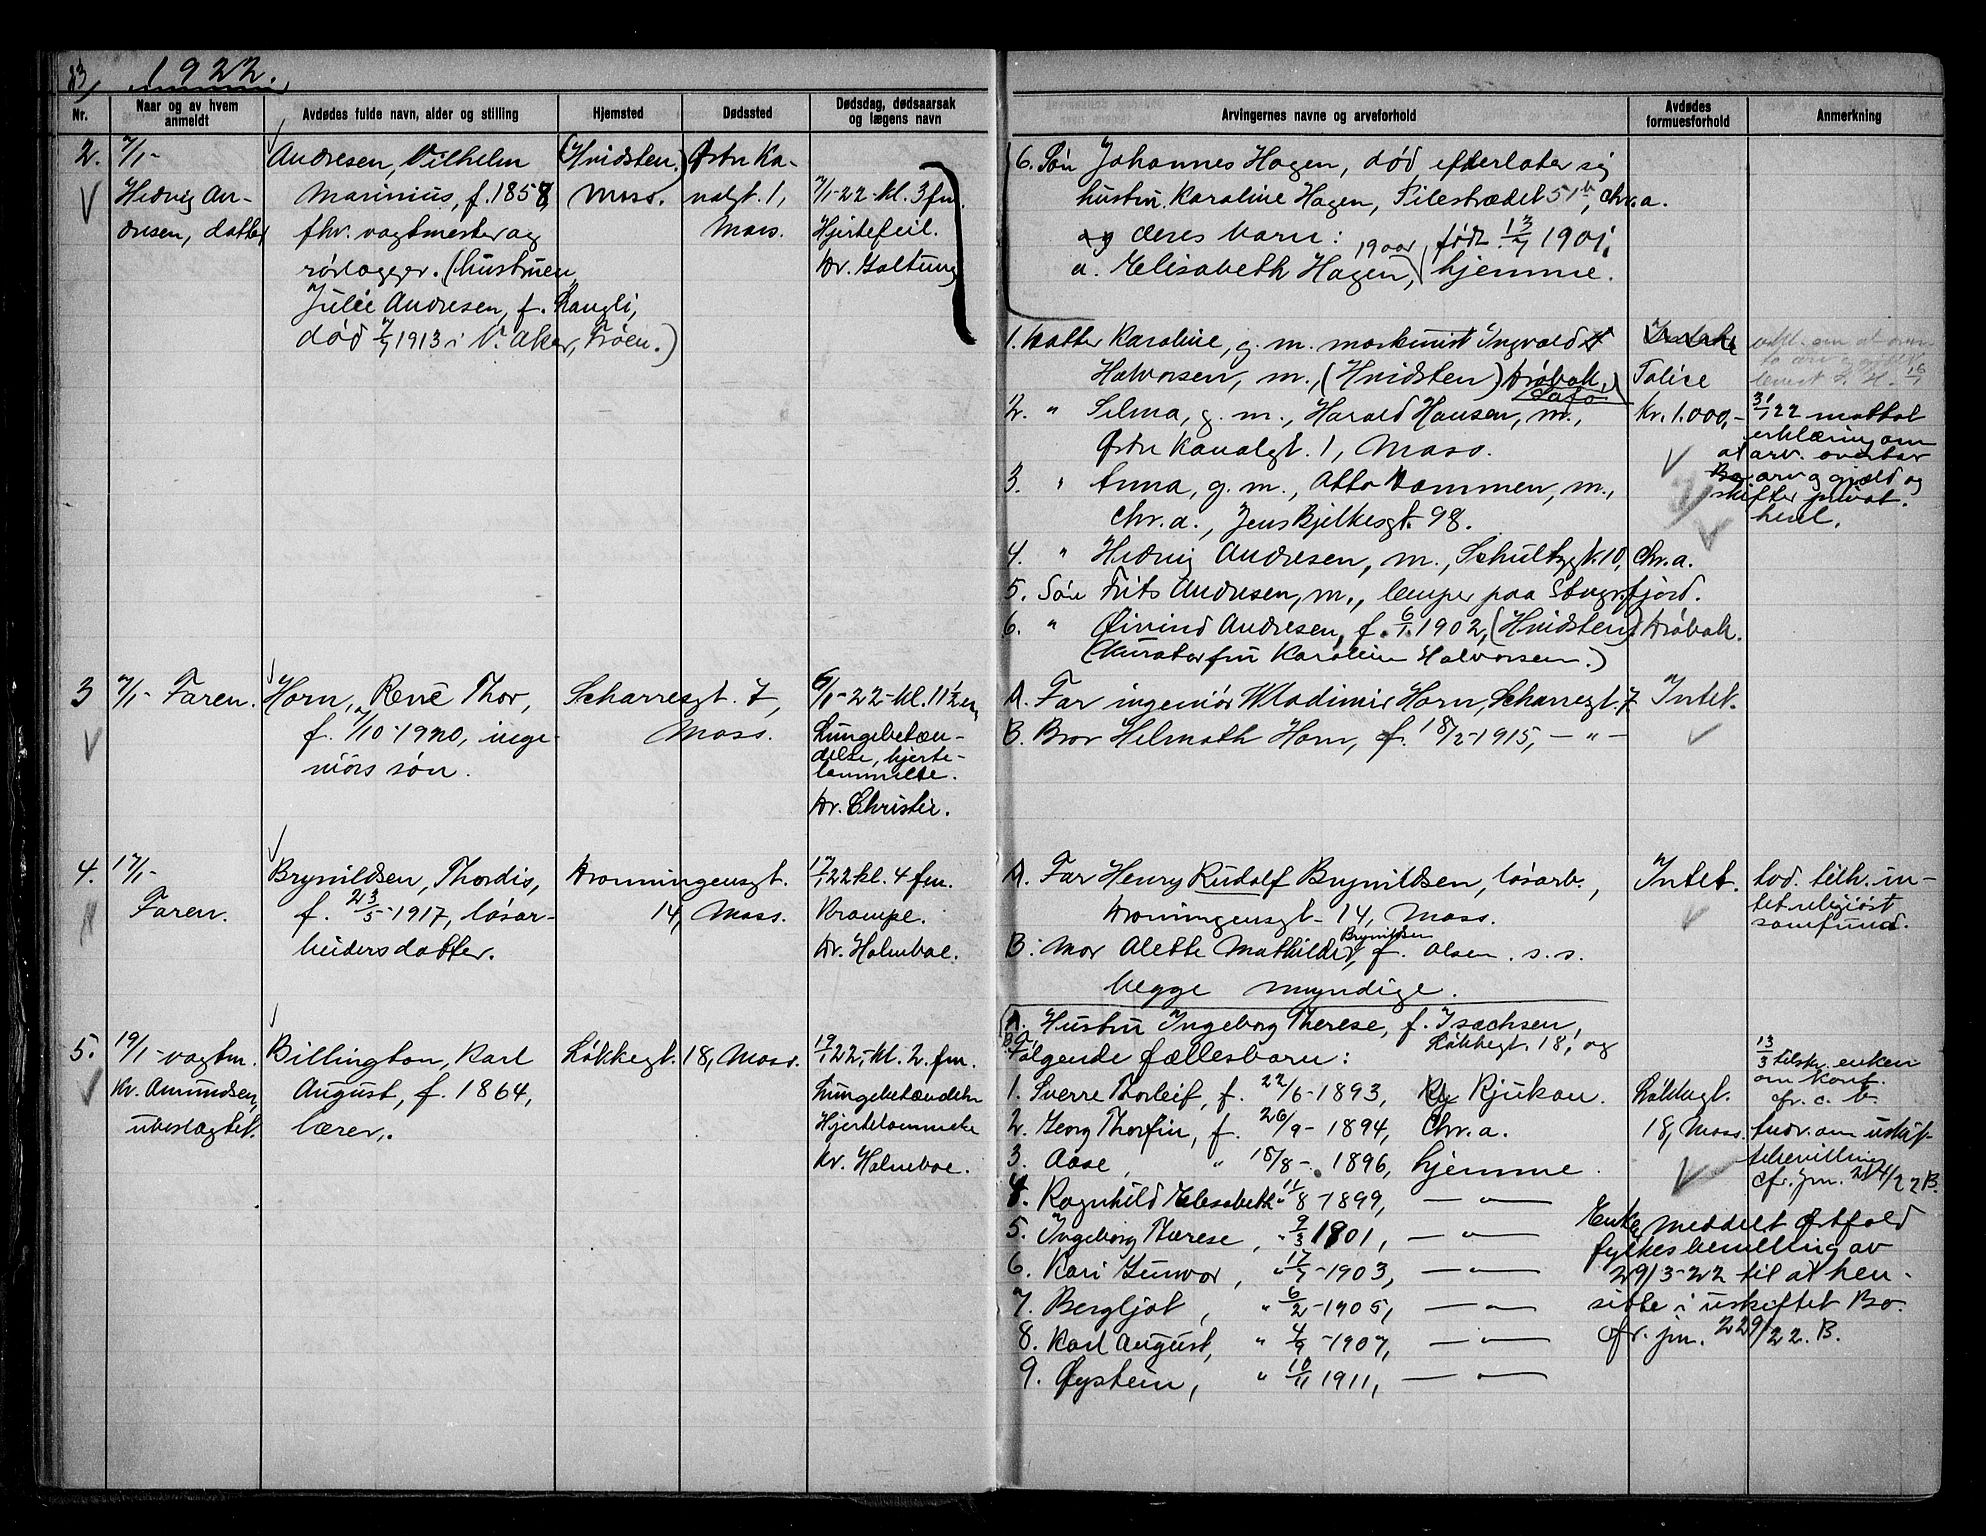 13/ 1922.
Nr.
Naar og av hvem anmeldt
Avdødes fulde navn, alder og stilling
Hjemsted
Dødssted
Dødsdag, dødsaarsak og lægens navn
Arvingernes navne og arveforhold
Avdødes formuesforhold
Anmerkning
6. Søn Johannes Hagen, død, efterlater sig
hustru Karoline Hagen, Pilestrædet 51 b, Chr.a.
og deres barn:
a. Elisabeth Hagen, 19 aar, født 13/7 1901, hjemme.
2. 7/1-
Hedvig An-
dresen, datter
Andresen, Vilhelm
Marinius, f. 1858,
fhv. vagtmester og
rørlægger. (hustruen
Julie Andresen, f. Langli,
død 7/7 1913 i V. Aker, Frøen.)
(Hvidsten)
Moss.
Østre Ka-
nalgt. 1,
Moss.
7/1-22-kl. 3 fm.
Hjertefeil.
Dr. Galtung
1. Datter Karoline, g. m. maskinist Ingvald
Halvorsen, m., (Hvidsten) Drøbak.
2. " Selma, g. m., Harald Hansen, m.,
Østre Kanalgt. 1, Moss.
3. " Anna, g. m., Otto Dammen, m.,
Chr.a., Jens Bjelkesgt. 98.
4. " Hedvig Andresen, m., Schultzgt. 10, Chr.a.
5. Søn Frits Andresen, m., lemper paa Stavgsfjord.
6. " Øivind Andresen, f. 6/1. 1902, (Hvidsten) Drøbak.
(Kurator fru Karoline Halvorsen.)
Police
Kr. 1.000,-
31/1 22 mottat
erklæring om
at arv. overtar
Bo. arv og gjæld og
skifter privat.
3 7/1- Faren.
Horn, René Thor,
f. 7/10-1920, inge-
niørs søn.
Scharresgt. 7,
Moss.
6/1-22-kl. 11 1/2 em,
Lungebetæn-
delse, hjerte-
lammelse.
Dr. Christie.
A. Far ingeniør Wladimir Horn, Scharresgt. 7
B. Bror Helmoth Horn, f. 18/2-1915, - " -
Intet.
4. 17/1-
Faren.
Brynildsen, Thordis,
f. 23/5-1917, løsar-
beidersdatter.
Dronningensgt.
14, Moss.
17/1 22 kl. 4 fm.
Krampe.
Dr. Holmboe.
A. Far Henry Rudolf Brynildsen, løsarb.,
Dronningensgt. 14, Moss.
B. Mor Alette Mathilde Brynildsen, f. Olsen. s. s.
begge myndige.
Intet.
tod. tilh. in-
tet religiøst
samfund.
5. 19/1-vagtm.
Kr. Amundsen,
ubeslægtet.
Billington, Karl
August, f. 1864,
lærer.
Løkkegt. 18, Moss.
17/1 22,-kl. 2. fm.
Lungebetændelse
Hjertelammelse
Dr. Holmboe.
A. Hustru Ingeborg Therese, f. Isachsen,
Løkkegt. 18, og
Følgende fællesbarn:
1. Sverre Thorleif, f. 22/6-1893, Rjukan.
2. Georg Thorfin, f. 26/9-1894, Chr.a.
3. Aase, " 18/8-1896, hjemme.
4. Ragnhild Elisabeth " 11/8-1899, — " —
5. Ingeborg Therese, " 9/3 1901, — " —
6. Kari Gunvor, " 17/7-1903, — " —
7. Bergljot, " 6/2-1905, — " —
8. Karl August, " 4/9-1907, — " —
9. Øystein, " 10/11 1911, — " —
Løkkegt.
18, Moss.
13/3 tilskr. enken
om konf.
cfr. c. b
Andr. om uskif-
tebevilling
cfr. jm. 214/22 B.
Enke meddelt Østfold
fylkes bevilling av
29/3-22 til at hen-
sitte i uskiftet Bo.
cfr. jm. 229/22. B.